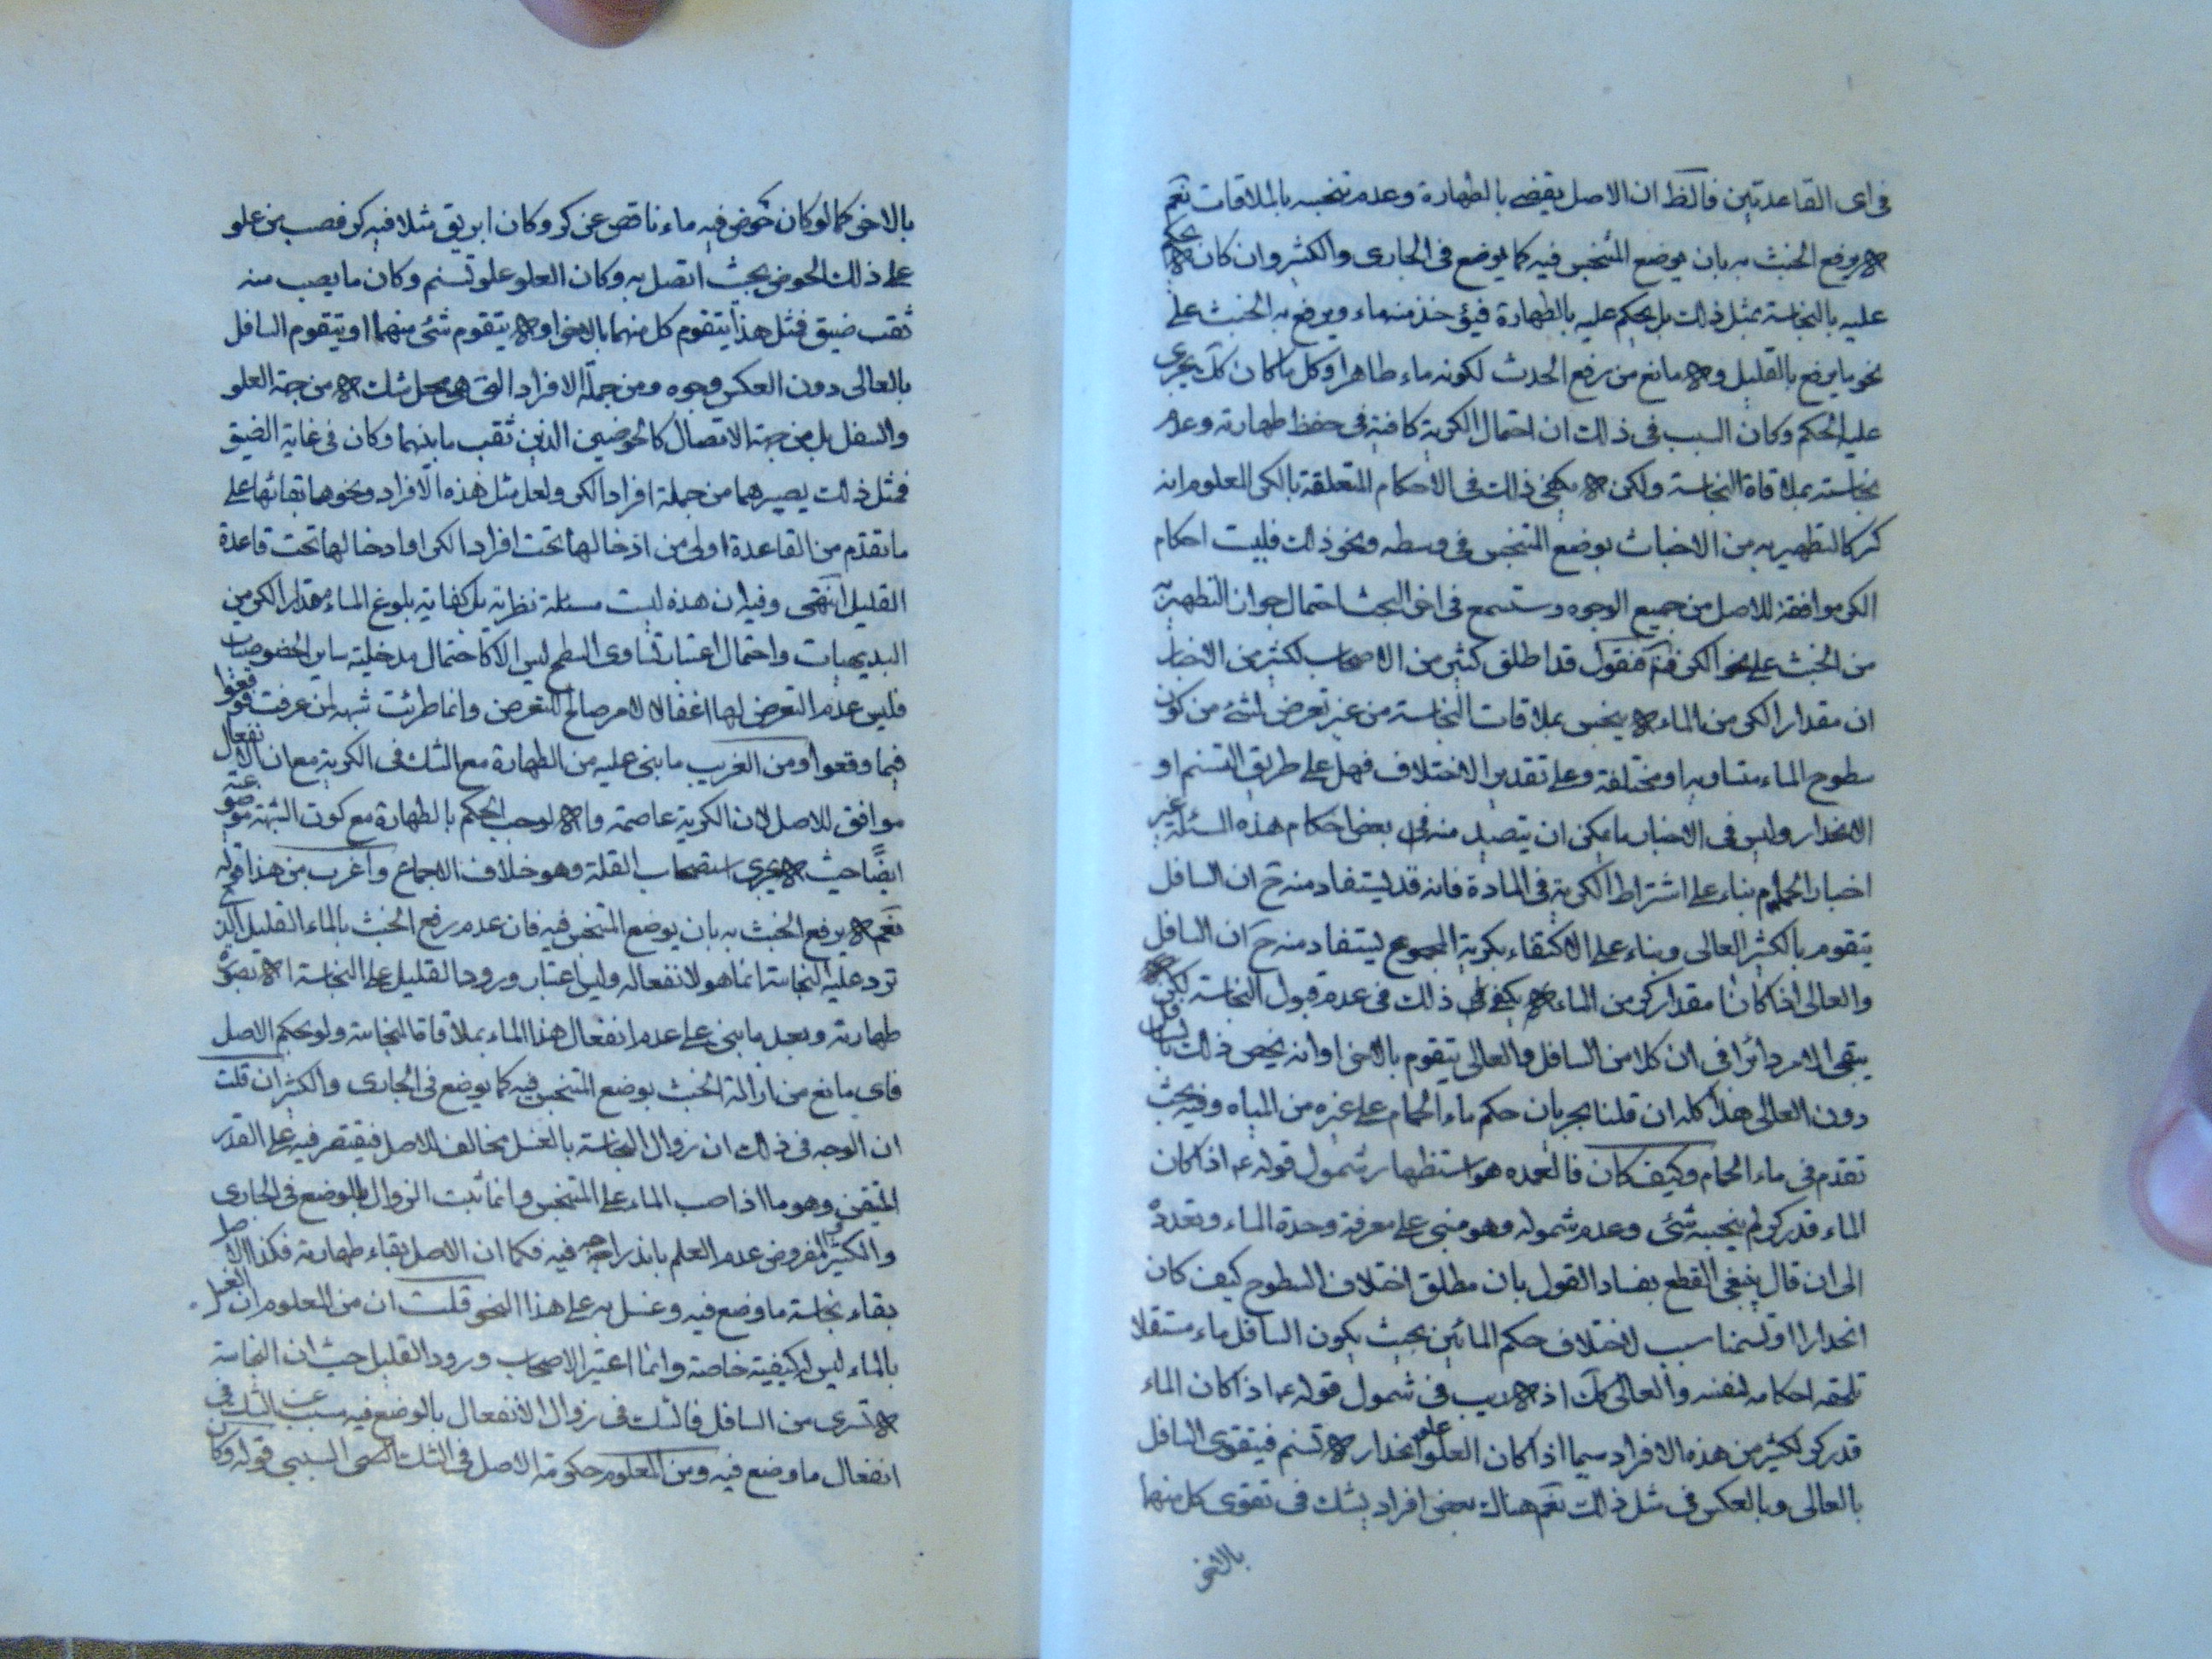 فى اى القاعدتين فالظ ان الاصل يقضى بالطهارة وعدم تنجسه بالملاقات نعم
لا يرفع الخبث به بان يوضع المتنجس فيه كما يوضع فى الجارى والكثير وان كان لا يحكم
عليه بالنجاسة بمثل ذلك بل يحكم عليه بالطهارة فيؤخذ منه ماء ويرفع به الخبث على
نحو ما يرفع بالقليل ولا مانع من رفع الحدث لكونه ماء طاهرا وكل ما كان كك يجرى
عليه الحكم وكان السبب فى ذلك ان احتمال الكرية كافية فى حفظ طهارته وعدم
نجاسته بملاقاة النجاسة ولكن لا يكفى ذلك فى الاحكام المتعلقة بالكر المعلوم انه
كر كالتطهير به من الاخباث بوضع المتنجس فى وسطه ونحو ذلك فليست احكام
الكر موافقة للاصل من جميع الوجوه وستسمع فى اخر البحث احتمال جواز التطهير به
من الخبث على نحو الكر فنقول قد اطلق كثير من الاصحاب لكثير من الاخبار
ان مقدار الكر من الماء لا ينجس بملاقات النجاسة من غير تعرض لشئ من كون
سطوح الماء متساويه او مختلفة وعلى تقدير الاختلاف فهل على طريق التسنم او
الانحدار وليس فى الاخبار ما يمكن ان يتصيد منه بعض احكام هذه المسئلة غير
اخبار الحمام بناء على اشتراط الكرية فى المادة فانه قد يستفاد منه ح ان السافل
يتقوم بالكثير العالى وبناء على الاكتفاء بكرية المجموع يستفاد منه ح ان السافل
والعالى اذا كانا مقدار كر من الماء يكفى ذلك فى عدم قبول النجاسة لكن
يبقى الامر دائرا فى ان كلا من السافل والعالى يتقوم بالاخر او انه يخص ذلك بالسافل
دون العالى هذا كله ان قلنا بجريان حكم ماء الحمام على غيره من المياه وفيه بحث
تقدم فى ماء الحمام وكيف كان فالعمده هو استظهار شمول قوله ع اذا كان
الماء قدر كر لم ينجسه شئ وعدم شموله وهو مبنى على معرفة وحدة الماء وتعدده
الى ان قال ينبغى القطع بفساد القول بان مطلق اختلاف السطوح كيف كان
انحدارا او تسنما سبب لاختلاف حكم المائين بحيث يكون السافل ماء مستقلا
تلحقه احكامه لنفسه والعالى كك اذ لا ريب فى شمول قوله ع اذا كان الماء
قدر كر لكثير من هذه الافراد سيما اذا كان العلو علو انحدار لا تسنم فيتقوى السافل
بالعالى وبالعكس فى مثل ذلك نعم هناك بعض افراد يشك فى تقوى كل منهما
بالاخر
بالاخر كما لو كان حوض فيه ماء ناقص عن كر وكان ابريق مثلا فيه كر فصب من علو
على ذلك الحوض بحيث اتصل به وكان العلو علو تسنم وكان ما يصب منه
ثقب ضيق فمثل هذا يتقوم كل منهما بالاخر او لا يتقوم شئ منهما او يتقوم السافل
بالعالى دون العكس وجوه ومن جملة الافراد التى هى محل شك لا من جهة العلو
والسفل بل من جهة الاتصال كالحوضين الذين ثقب ما بينهما وكان فى غاية الضيق
فمثل ذلك يصيرهما من جملة افراد الكر ولعل مثل هذه الافراد ونحوها بقائها على
ما تقدم من القاعدة اولى من ادخالها تحت افراد الكر او ادخالها تحت قاعدة
القليل انتهى وفيه ان هذه ليست مسئلة نظرية بل كفاية بلوغ الماء مقدار الكر من
البديهيات واحتمال اعتبار تساوى السطح ليس الا كاحتمال مدخلية ساير الخصوصيات
فليس عدم التعرض لها اغفالا لامر صالح للتعرض وانما طرئت شبهة لمن عرفت فوقعوا
فيما وقعوا ومن الغريب ما بنى عليه من الطهارة مع الشك فى الكرية مع ان الانفعال
موافق للاصل لان الكرية عاصمة والا لوجب الحكم بالطهارة مع كون الشبهة موضوعية
ايضا حيث لا يجرى استصحاب القلة وهو خلاف الاجماع واغرب من هذا قوله
نعم لا يرفع الخبث به بان يوضع المتنجس فيه فان عدم رفع الخبث بالماء القليل الذى
ترد عليه النجاسة انما هو لانفعاله وليس اعتبار ورود القليل على النجاسة الا تصور
طهارته وبعد ما بنى على عدم انفعال هذا الماء بملاقاة النجاسة ولو بحكم الاصل
فاى مانع من ازالة الخبث بوضع المتنجس فيه كما يوضع فى الجارى والكثير ان قلت
ان الوجه فى ذلك ان زوال النجاسة بالغسل مخالف للاصل فيقتصر فيه على القدر
المتيقن وهو ما اذا صب الماء على المتنجس وانما ثبت الزوال بالوضع فى الجارى
والكثير والمفروض عدم العلم باندراجه فيه فكما ان الاصل بقاء طهارته فكذا الاصل
بقاء نجاسة ما وضع فيه وغسل به على هذا النحو قلت ان من المعلوم ان الغسل
بالماء ليس له كيفية خاصة وانما اعتبر الاصحاب ورود القليل حيث ان النجاسة
لا تسرى من السافل فالشك فى زوال الانفعال بالوضع فيه سبب عن الشك فى
انفعال ما وضع فيه ومن المعلوم حكومة الاصل فى الشك السببى قوله وكان